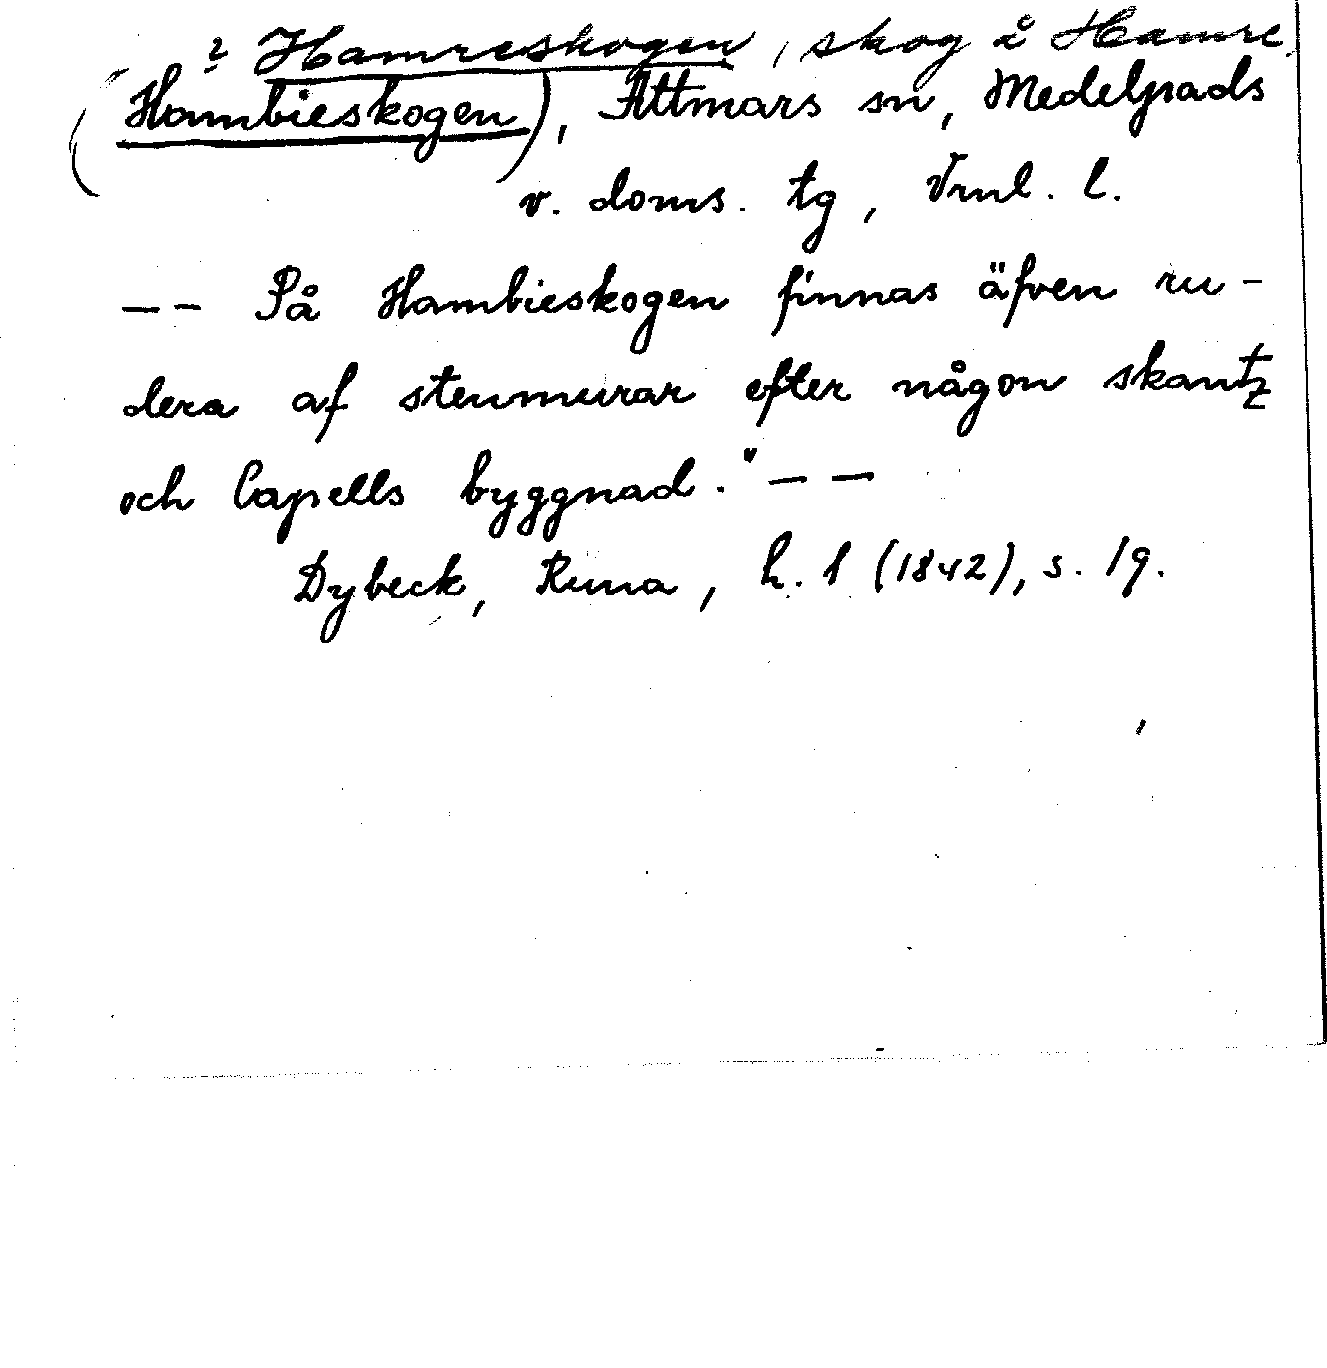 ? Hamreskogen, skog å Hamre
(Hambieskogen), Attmars sn, Medelpads
v. doms. tg, Vrnl. l.
-- På Hambieskogen finnas äfven ru-
dera af stenmurar efter någon skantz
och Capells byggnad." --
Dybeck, Runa, h. 1 (1842), s. 19.